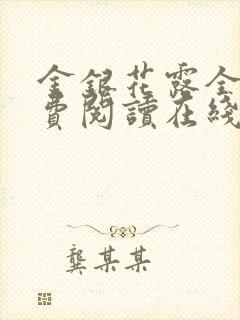 金銀花露全
費閱讀在綫
龔某某